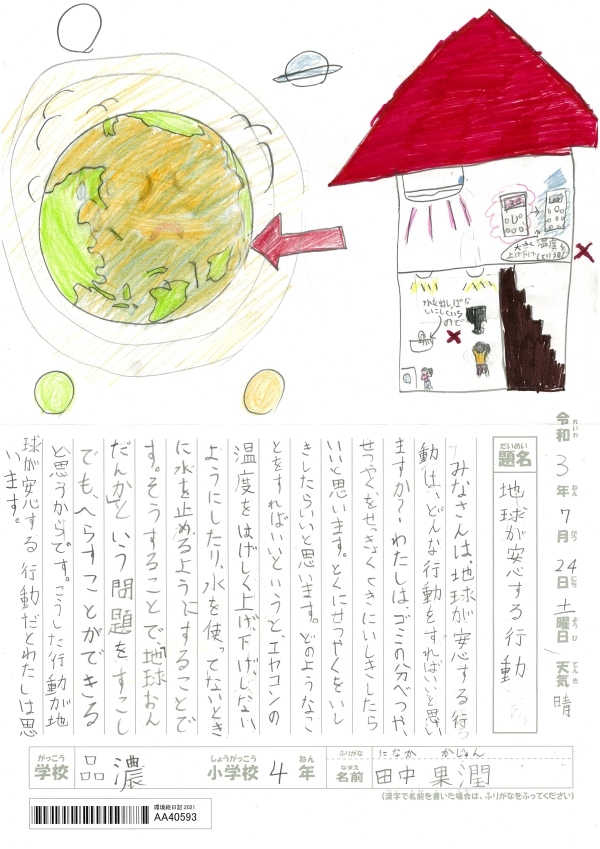 令和 3年 7月 24日 土曜日 天気 晴
れいわ ねん がつ にち ようび てんき
だいめい
題名 地球が安心する行動
みなさんは、地球が安心する行
動は、どんな行動をすればいいと思い
ますか？わたしは、ゴミの分べつや、
せつやくを、せっきょくてきにいしきしたら
いいと思います。とくにせつやくをいし
きしたらいいと思います。どのようなこ
とをすればいいというと、エヤコンの
温度をはげしく上げ下げしない
ようにしたり、水を使ってないとき
に水を止めるようにすることで
す。そうすることで、「地球おん
だんか」という問題をすこし
でも、へらすことができる
と思うからです。こうした行動が地
球が安心する行動だとわたしは思
います。
がっこう しょうがっこう ねん ふりがな になか かじゅん
学校 品濃 小学校 4年 なまえ 名前 田中 果潤
(漢字で名前を書いた場合は、ふりがなをふってください)
環境絵日記 2021
AA40593